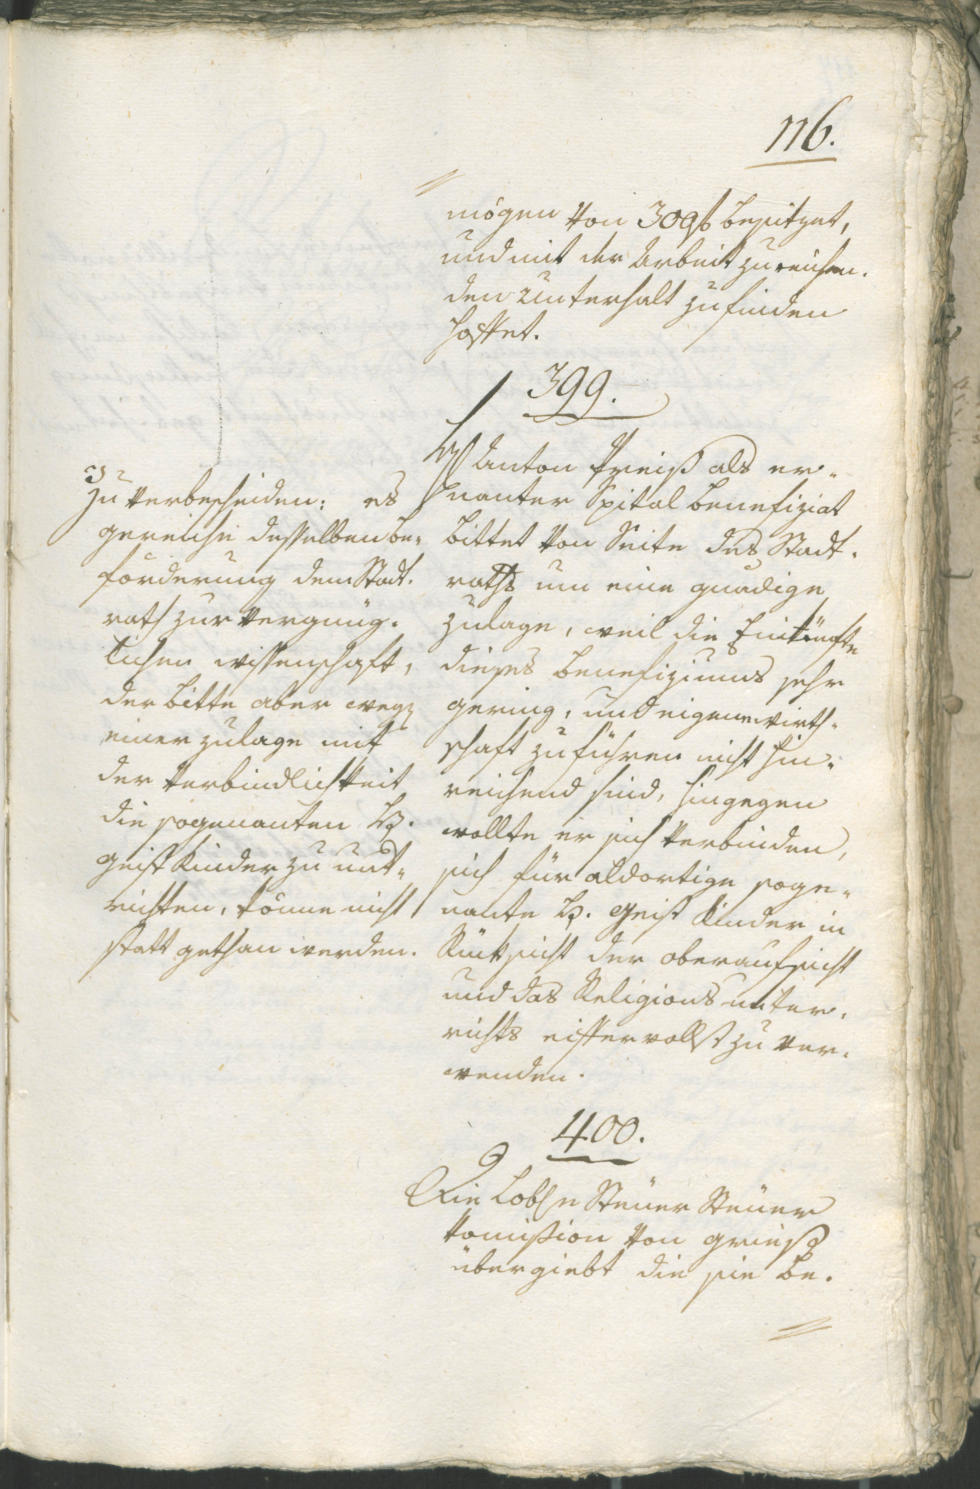 116.
mögen von 309 f besitzet,
und mit der Arbeit zureichen-
den Unterhalt zu finden
hoffet.
399.
Anton Preiß als er-
nanter Spital benefiziat
bittet von Seite des Stadt-
raths um eine gnädige
Zulage, weil die Einkünfte
dieses benefiziums sehr
gering, und eigene wirth-
schaft zu führen nicht hin-
reichend sind, hingegen
wollte er sich verbinden,
sich für aldortige soge-
nante H. Geist Kinder in
Rüksicht der oberaufsicht
und das Religions unter-
richts eiffervollst zu ver-
wenden.
Zu verbescheiden: es
gereiche desselben be-
förderung dem Stadt-
rath zur vergnüg-
lichen wissenschaft,
der bitte aber weg
einer zulage mit
der verbindlichkeit
die sogenanten H.
Geist Kinder zu unt-
richten, könne nicht
statt gethan werden.
400.
Die Lobl Steuer Steuer
Komißion von Grieß
übergiebt die sie be-